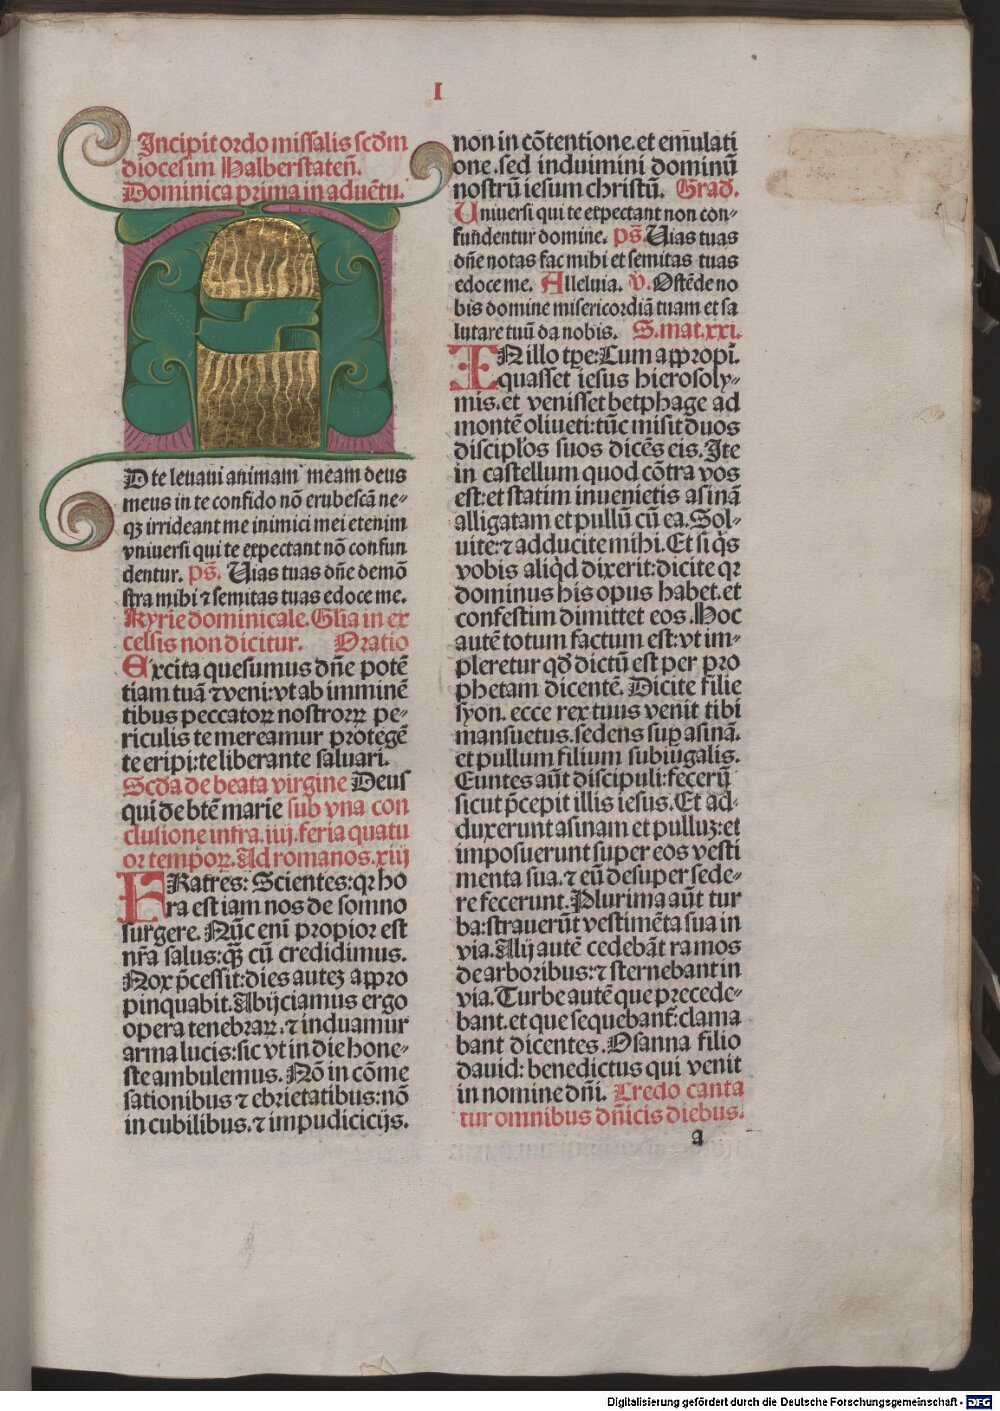 I
Incipit ordo missalis scďm
diocesim Halberstateñ.
Dominica prima in aduētu.
AD te leuaui animam meam deus
meus in te confido nō erubescā ne⸗
qꝫ irrideant me inimici mei etenim
vniuersi qui te expectant nō confun
dentur. ps̄. Uias tuas dñe demō
stra mihi ⁊ semitas tuas edoce me.
Kyrie dominicale. Glīa in ex
celsis non dicitur. Oratio
Excita quesumus dñe potē
tiam tuā ⁊ veni: vt ab imminē
tibus peccatoꝝ nostroꝝ pe⸗
riculis te mereamur protegē
te eripi: te liberante saluari.
Scďa de beata virgine Deus
qui de btē marie sub vna con
clusione infra. iiij. feria quatu
or tempoꝝ. Ad romanos. xiij
FRatres: Scientes: qꝛ ho
ra est iam nos de somno
surgere. Nūc eni propior est
nr̄a salus: qꝫ̄ cū credidimus.
Nox p̄cessit: dies auteꝫ appro
pinquabit. Abijciamus ergo
opera tenebraꝝ. ⁊ induamur
arma lucis: sic vt in die hone⸗
ste ambulemus. Nō in cōme
sationibus ⁊ ebrietatibus: nō
in cubilibus. ⁊ impudicicijs.
non in cōtentione. et emulati
one. sed induimini dominū
nostrū iesum christū. Grad̄.
Uniuersi qui te expectant non con⸗
fundentur domine. ps̄. Uias tuas
dñe notas fac mihi et semitas tuas
edoce me. Alleluia. v̄. Ostēde no
bis domine misericordiā tuam et sa
lutare tuū da nobis. S. mat. xxi.
IN illo tꝑe: Cum appropī.
quasset iesus hierosoly⸗
mis. et venisset betphage ad
montē oliueti: tūc misit duos
discipl'os suos dicēs eis. Ite
in castellum quod cōtra vos
est: et statim inuenietis asinā
alligatam et pullū cū ea. Sol⸗
uite: ⁊ adducite mihi. Et si q̇s
vobis aliq̇d dixerit: dicite qꝛ
dominus his opus habet. et
confestim dimittet eos. Hoc
autē totum factum est: vt im⸗
pleretur qď dictū est per pro
phetam dicentē. Dicite filie
syon. ecce rex tuus venit tibi
mansuetus. sedens suꝑ asinā.
et pullum filium subiugalis.
Euntes aūt discipuli: fecerūt
sicut p̄cepit illis iesus. Et ad⸗
duxerunt asinam et pulluꝫ: et
imposuerunt super eos vesti
menta sua. ⁊ eū desuper sede⸗
re fecerunt. Plurima aūt tur
ba: strauerūt vestimēta sua in
via. Alij autē cedebāt ramos
de arboribus: ⁊ sternebant in
via. Turbe autē que precede⸗
bant. et que sequebanť: clama
bant dicentes. Osanna filio
dauid: benedictus qui venit
in nomine dñi. Credo canta
tur omnibus dñicis diebus.
a
Digitalisierung gefördert durch die Deutsche Forschungsgemeinschaft - DFG